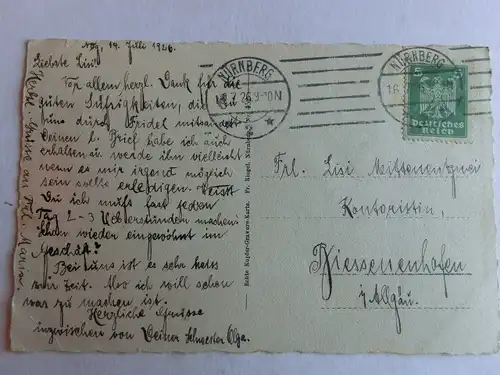 Nbg, 14. Juli 1926.
Liebste Lisi!
Vor allem herzl. Dank für die
guten Süßigkeiten, die Du
uns durch Friedel mitsandtest
Deinen l. Brief habe ich auch
erhalten u. werde ihn vielleicht
wenn es mir irgend möglich
sein sollte erledigen. Weißt
Du ich muß fast jeden
Tag 2-3 Ueberstunden machen.
Schon wieder eingewöhnt im
Geschäft?
Bei uns ist es sehr
zur Zeit. Also ich will schon
was zu machen ist.
Herzliche Grüsse
inzwischen von Deiner Schwester Olga.
Herzl. Grüsse an Frl.
Echte Kupfer-Gravure-Karte. Fr. Riegel, Nürnberg
NÜRNBERG
7.26.9-10N
NÜRNBERG
5
Deutsches
Reich
Frl. Lisi Mittenentzwei
Kontoristin,
Diessenhofen
i/Allgäu.